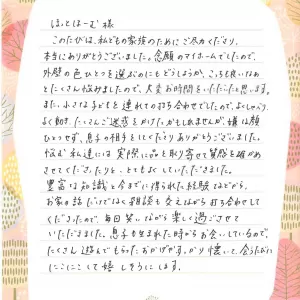 ほっとほーむ 様
このたびは、私どもの家族のためにご尽力くださり、
本当にありがとうございました。念願のマイホームでしたので、
外壁の色ひとつを選ぶのにもどうしようか、こっちも良いなぁ
とたくさん悩みましたので、大変お時間をいただいたと思います。
また、小さな子どもを連れての打ち合わせでしたので、よくしゃべり、
よく動き、たくさんご迷惑をかけたかもしれませんが、嫌な顔
ひとつせず、息子の相手をしてくださりありがとうございました。
悩む私達には実際に品を取り寄せて質感を確かめ
させてくださったりと、とてもよくしていただきました。
豊富な知識と今までに得られた経験などから、
お家の話だけでなく雑談も交えながら打ち合わせして
くださったので、毎日笑いながら楽しく過ごさせて
いただきました。息子が生まれた時からお会いしているので、
たくさん遊んでもらったおかげですっかり懐いて、会うたびに
にこにこして嬉しそうにします。